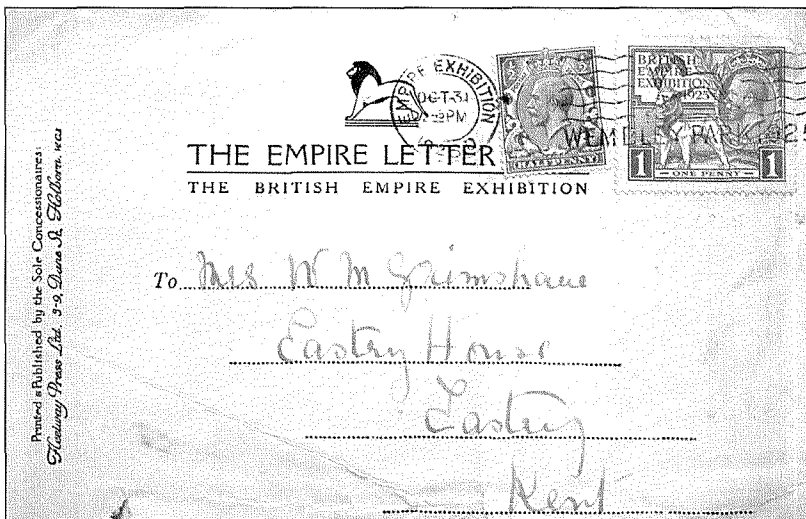 Printed & Published by the Sole Concessionaires:
Fleetway Press Ltd. 3-9, Dane St, Holborn, WC1
EMPIRE EXHIBITION
OCT 31
PM
WEMBLEY PARK
HALFPENNY
BRITISH
EMPIRE
EXHIBITION
1925
1 ONE PENNY 1
THE EMPIRE LETTER
THE BRITISH EMPIRE EXHIBITION
To Mrs W M Grimshawe
Eastry House
Eastry
Kent